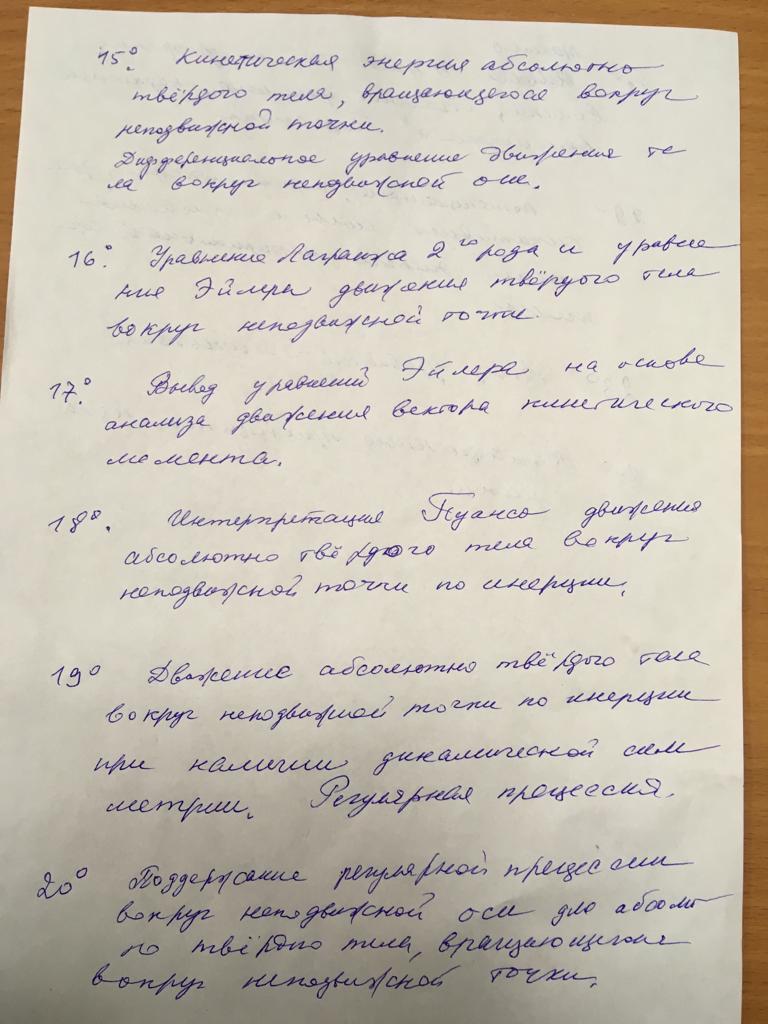 15°. Кинетическая энергия абсолютно
твёрдого тела, вращающегося вокруг
неподвижной точки.
Дифференциальное уравнение движения те
ла вокруг неподвижной оси.
16°. Уравнение Лагранжа 2го рода и уравне
ния Эйлера движения твёрдого тела
вокруг неподвижной точки.
17°. Вывод уравнений Эйлера на основе
анализа движения вектора кинетического
момента.
18°. Интерпретация Пуансо движения
абсолютно твёрдого тела вокруг
неподвижной точки по инерции.
19° Движение абсолютно твёрдого тела
вокруг неподвижной точки по инерции
при наличии динамической сим
метрии. Регулярная процессия.
20° Поддержание регулярной прецессии
вокруг неподвижной оси для абсолют
но твёрдого тела, вращающегося
вокруг неподвижной точки.